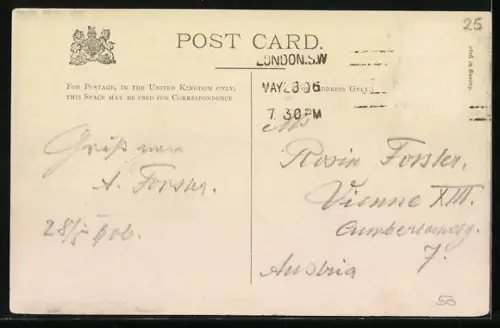 25
POST CARD.
LONDON.S.W
MAY 28 06
7. 30 PM
FOR POSTAGE, IN THE UNITED KINGDOM ONLY,
THIS SPACE MAY BE USED FOR CORRESPONDENCE
FOR ADDRESS ONLY.
Gruß von
A. Forster.
28/5 906.
Rosin Forster.
Vienne XIII.
Cumberlandg.
7.
Austria
53